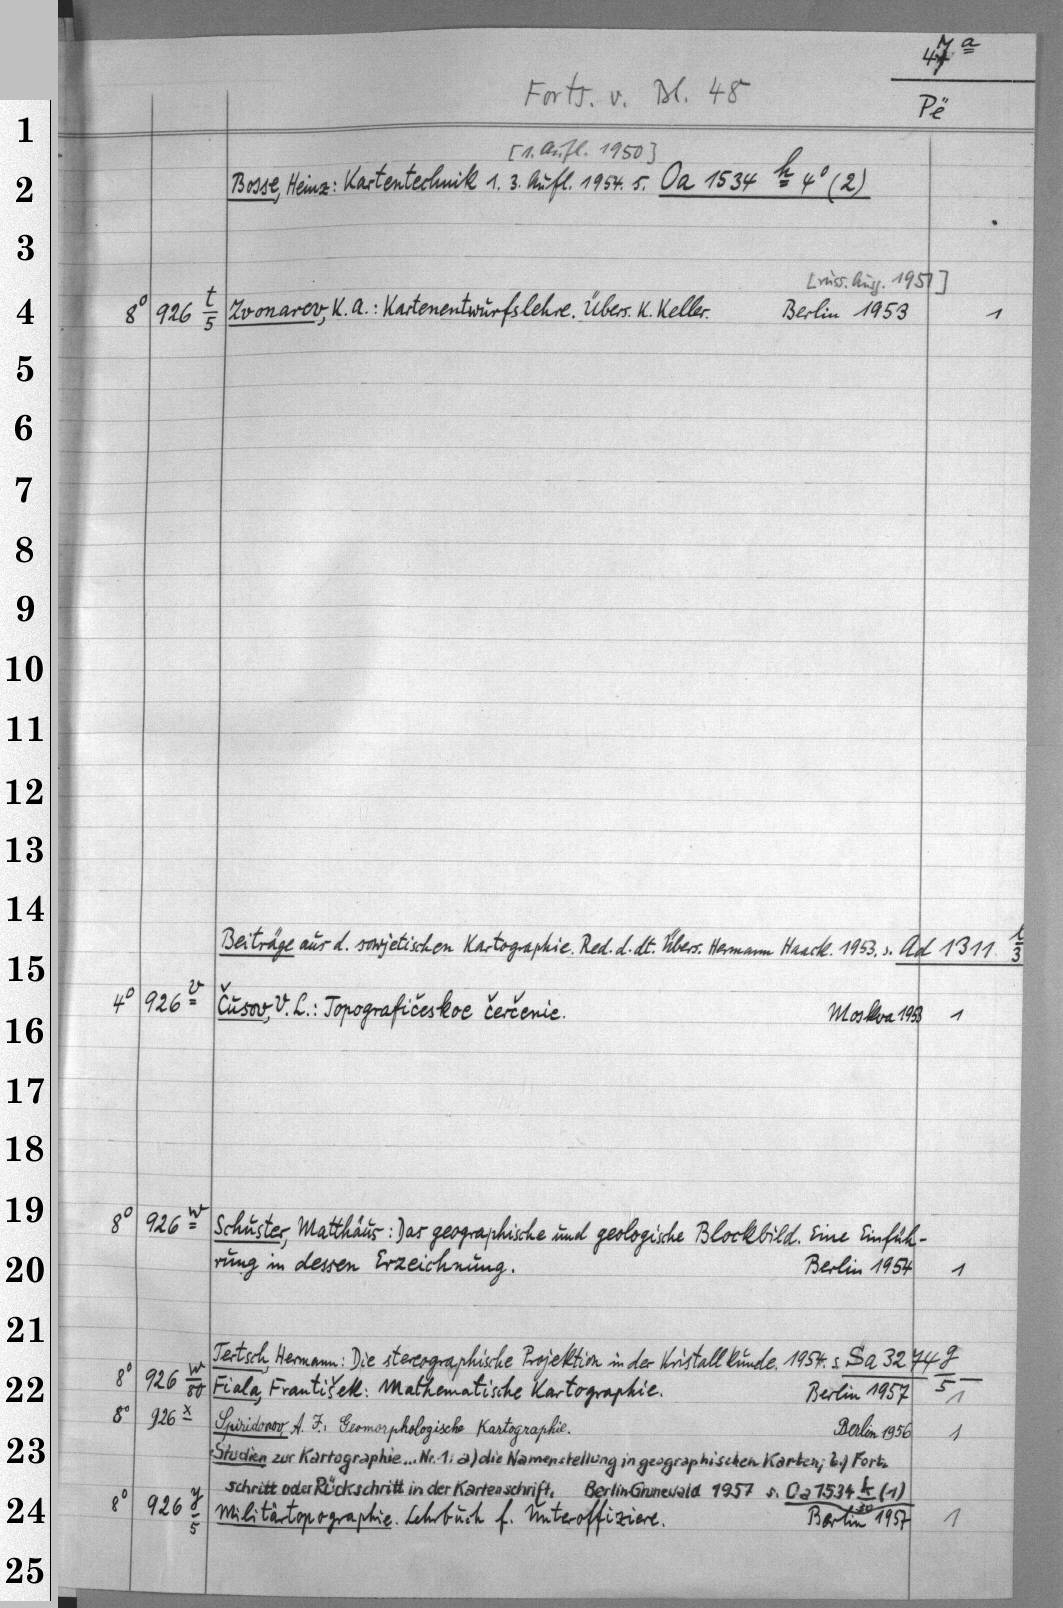 47 a
Pë
Forts. v. Bl. 48
[1. Aufl. 1950]
Bosse, Heinz: Kartentechnik 1. 3. Aufl. 1954. s. Oa 1534 h 4° (2)
[russ. Ausg. 1951]
8° 926 t/5 Zvonarev, K. A.: Kartenentwurfslehre. Übers. K. Keller. Berlin 1953 1
Beiträge aus d. sowjetischen Kartographie. Red. d. dt. Übers. Hermann Haack. 1953. s. Ad 1311 l/3
4° 926 v Čusov, V. L.: Topografičeskoe čerčenie. Moskva 1953 1
8° 926 w Schuster, Matthäus: Das geographische und geologische Blockbild. Eine Einfüh-
rung in dessen Erzeichnung. Berlin 1954 1
Tertsch, Hermann: Die stereographische Projektion in der Kristallkunde. 1954. s. Sa 3274 g/5
8° 926 w/80 Fiala, František: Mathematische Kartographie. Berlin 1957 1
8° 926 x Spiridonov, A. I.: Geomorphologische Kartographie. Berlin 1956 1
Studien zur Kartographie... Nr. 1: a) die Namenstellung in geographischen Karten; b.) Fort-
schritt oder Rückschritt in der Kartenschrift. Berlin-Grunewald 1957 s. Oa 1534 k/30 (1)
8° 926 y/5 Militärtopographie. Lehrbuch f. Unteroffiziere. Berlin 1957 1
1
2
3
4
5
6
7
8
9
10
11
12
13
14
15
16
17
18
19
20
21
22
23
24
25